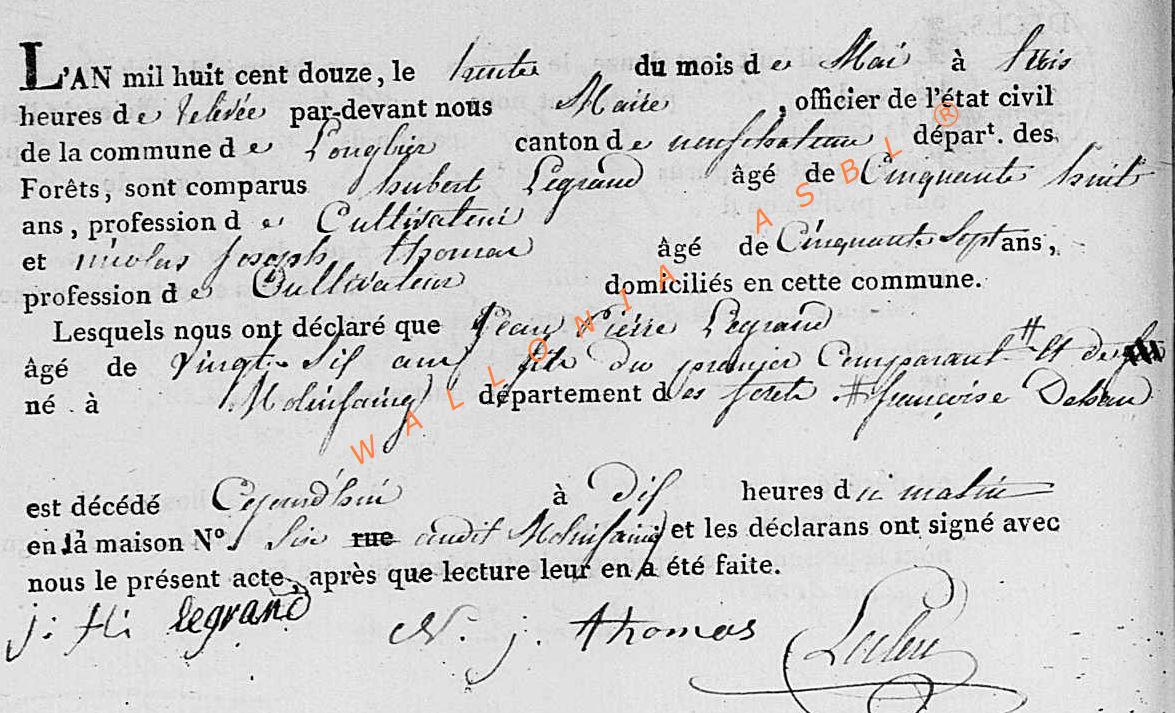 L'AN mil huit cent douze, le trente du mois de Mai à trois
heures de relevée par-devant nous Maire , officier de l'état civil
de la commune de Longlier canton de neufchateau départ. des
Forêts, sont comparus hubert Legrand âgé de Cinquante huit
ans, profession de Cultivateur
et nicolas joseph thomas âgé de Cinquante Sept ans,
profession de Cultivateur domiciliés en cette commune.
Lesquels nous ont déclaré que Jean Pierre Legrand
âgé de Vingt Six ans fils du premier Comparant # et de
né à Molinfaing département des forets # françoise
est décédé Cejourd'hui à Dix heures du matin
en la maison N° Six rue audit Molinfaing et les déclarans ont signé avec
nous le présent acte, après que lecture leur en a été faite.
j: H: legrand N. j. thomas
WALLONIA ASBL ®